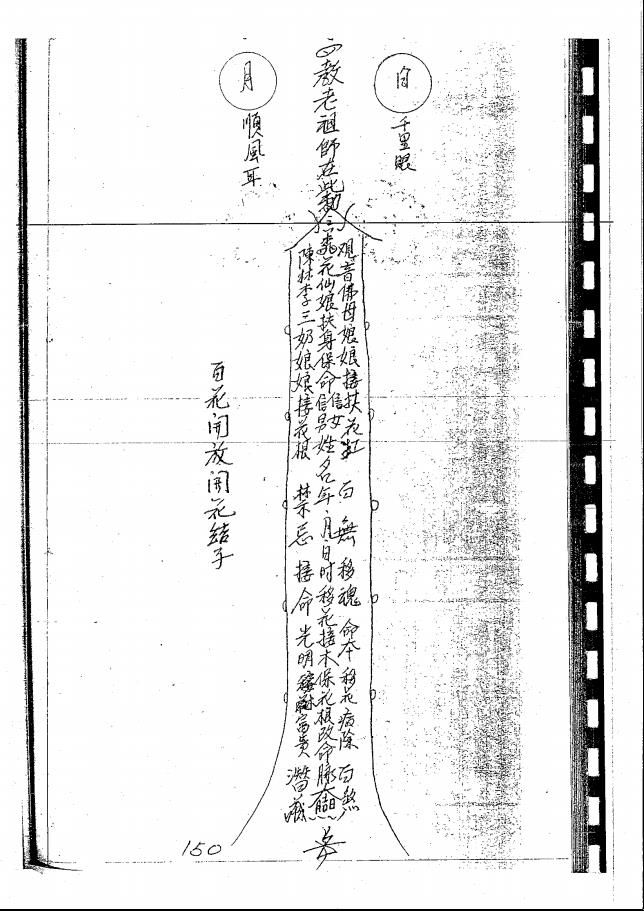 日
千里眼
教老祖師在此
观音佛母娘娘接扶花 百無移魂命本移花病除百煞
花仙娘扶身保命信男信女姓名年月日时移花接木保花根改命
陳林李三奶娘娘接花根 禁忌接命光明 富貴
月
順風耳
百花開放開花結子
150